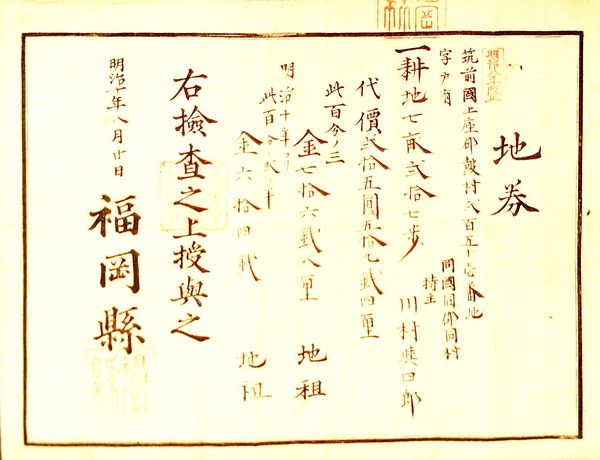 地券
明治八年改正
筑前國上座郡鼓村弐百五十壱番地
字戸宥
同國同郡同村
一耕地七畝弐拾七歩
持主 川村 四郎
代價弐拾五圓五拾九銭四厘
此百分ノ三
金七拾六銭八厘 地租
明治十年ヨリ
此百分ノ弐ヶ半
金六拾四銭 地租
右撿査之上授與之
明治十年八月廿日
福岡縣